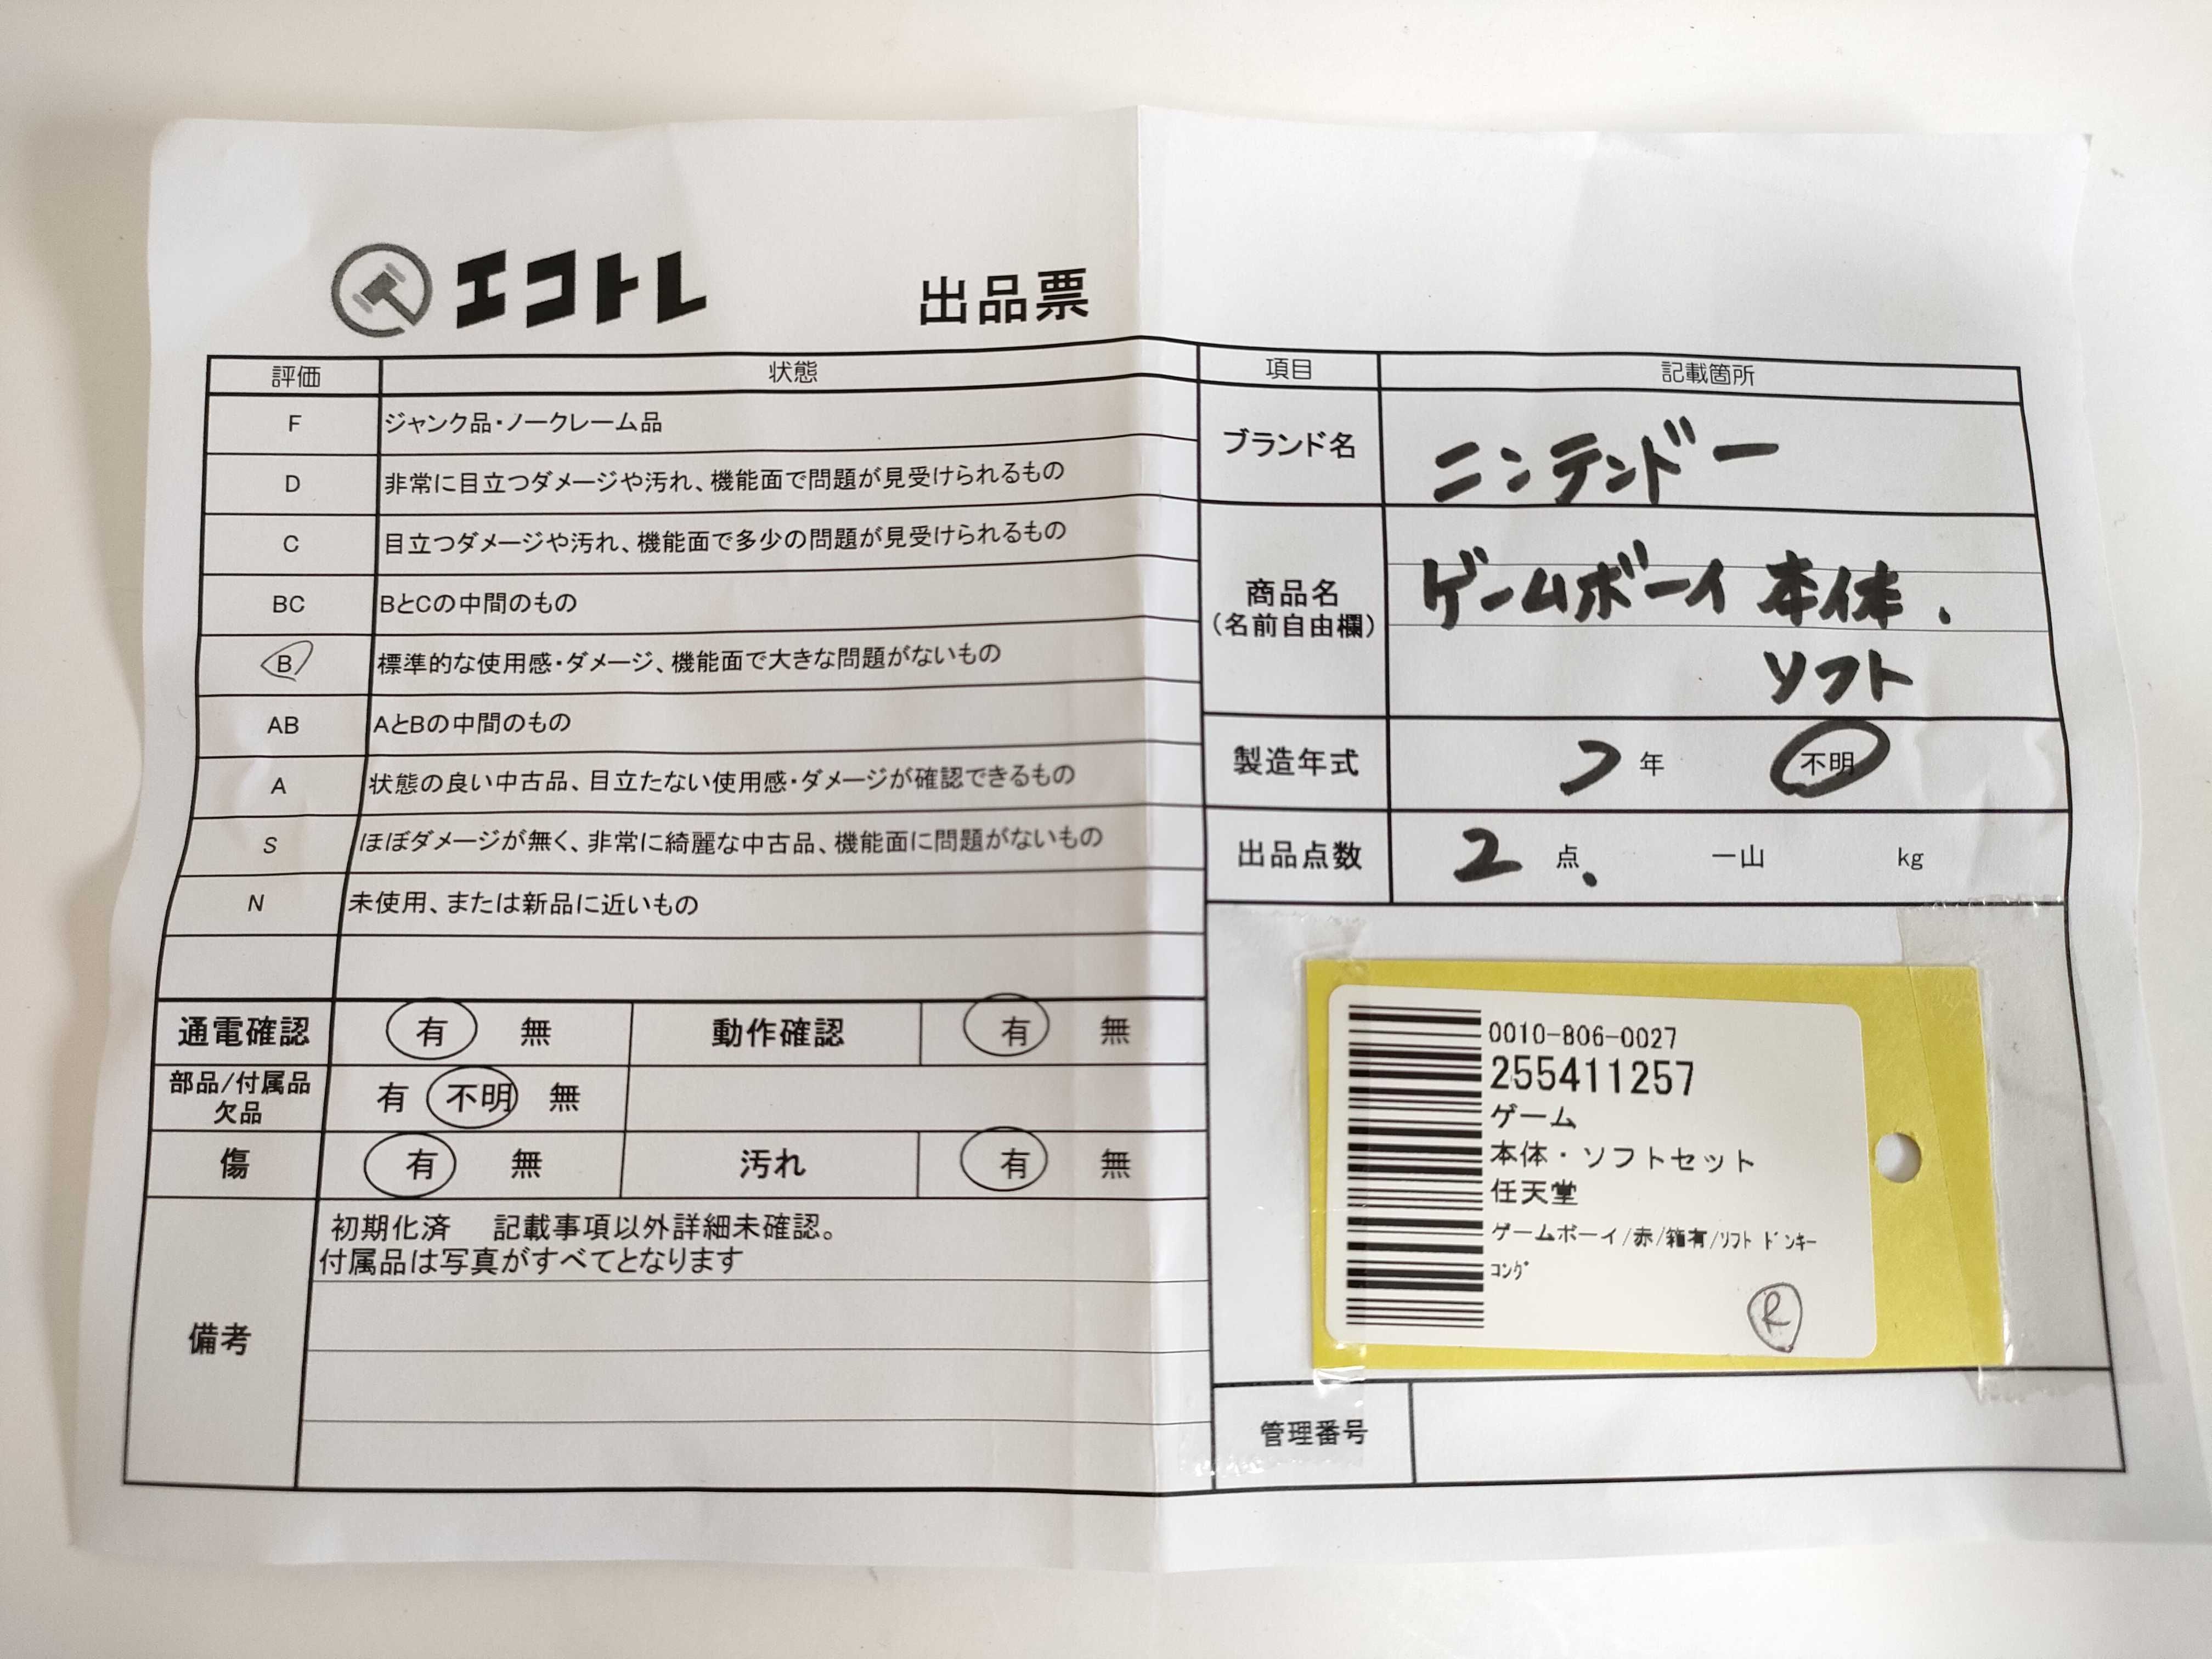 エコトレ 出品票
評価 状態
F ジャンク品・ノークレーム品
D 非常に目立つダメージや汚れ、機能面で問題が見受けられるもの
C 目立つダメージや汚れ、機能面で多少の問題が見受けられるもの
BC BとCの中間のもの
B 標準的な使用感・ダメージ、機能面で大きな問題がないもの
AB AとBの中間のもの
A 状態の良い中古品、目立たない使用感・ダメージが確認できるもの
S ほぼダメージが無く、非常に綺麗な中古品、機能面に問題がないもの
N 未使用、または新品に近いもの
通電確認 有 無 動作確認 有 無
部品/付属品
欠品 有 不明 無
傷 有 無 汚れ 有 無
備考
初期化済 記載事項以外詳細未確認。
付属品は写真がすべてとなります
項目 記載箇所
ブランド名 ニンテンドー
商品名
(名前自由欄)
ゲームボーイ 本体.
ソフト
製造年式 年 不明
出品点数 2 点. 一山 kg
0010-806-0027
255411257
ゲーム
本体・ソフトセット
任天堂
ゲームボーイ/赤/箱有/ｿﾌﾄ ﾄﾞﾝｷｰ
ｺﾝｸﾞ
R
管理番号